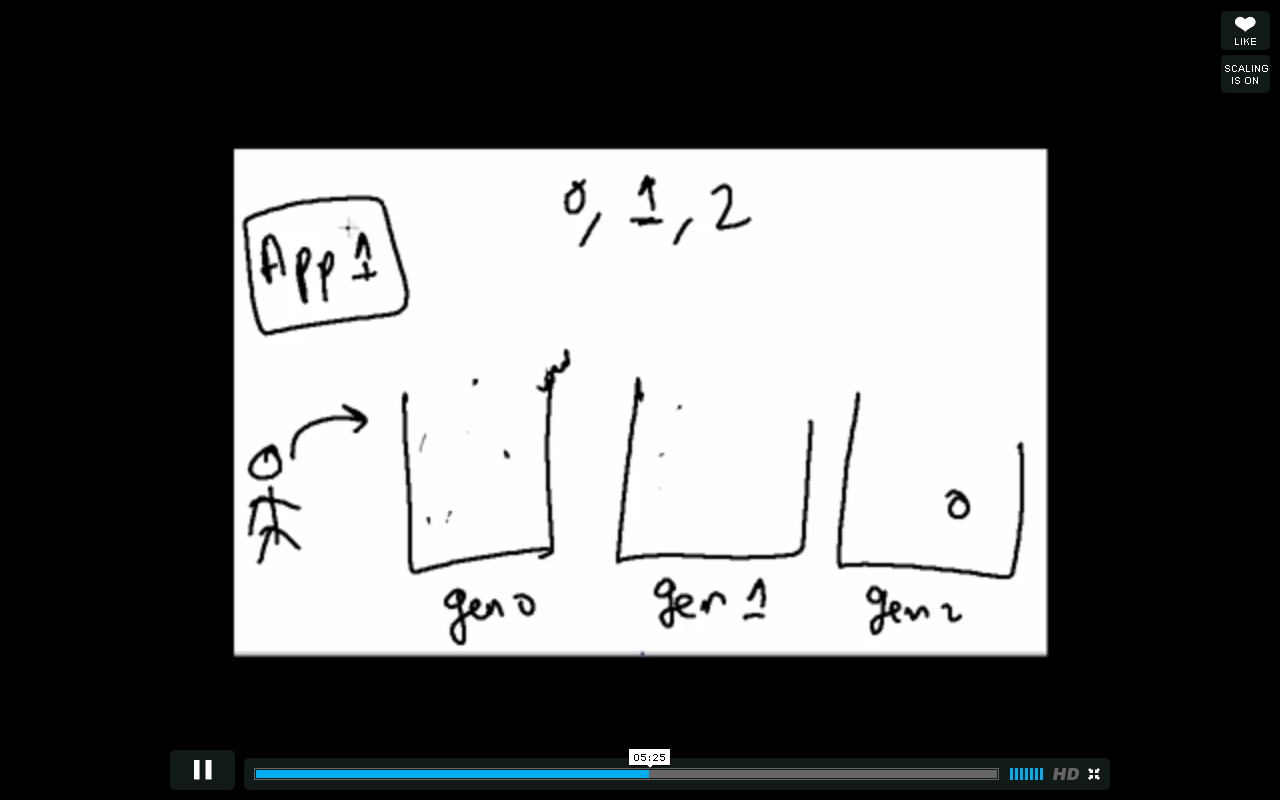 LIKE
SCALING
IS ON
0, 1, 2
App 1
gen 0
gen 1
gen 2
05:25
HD